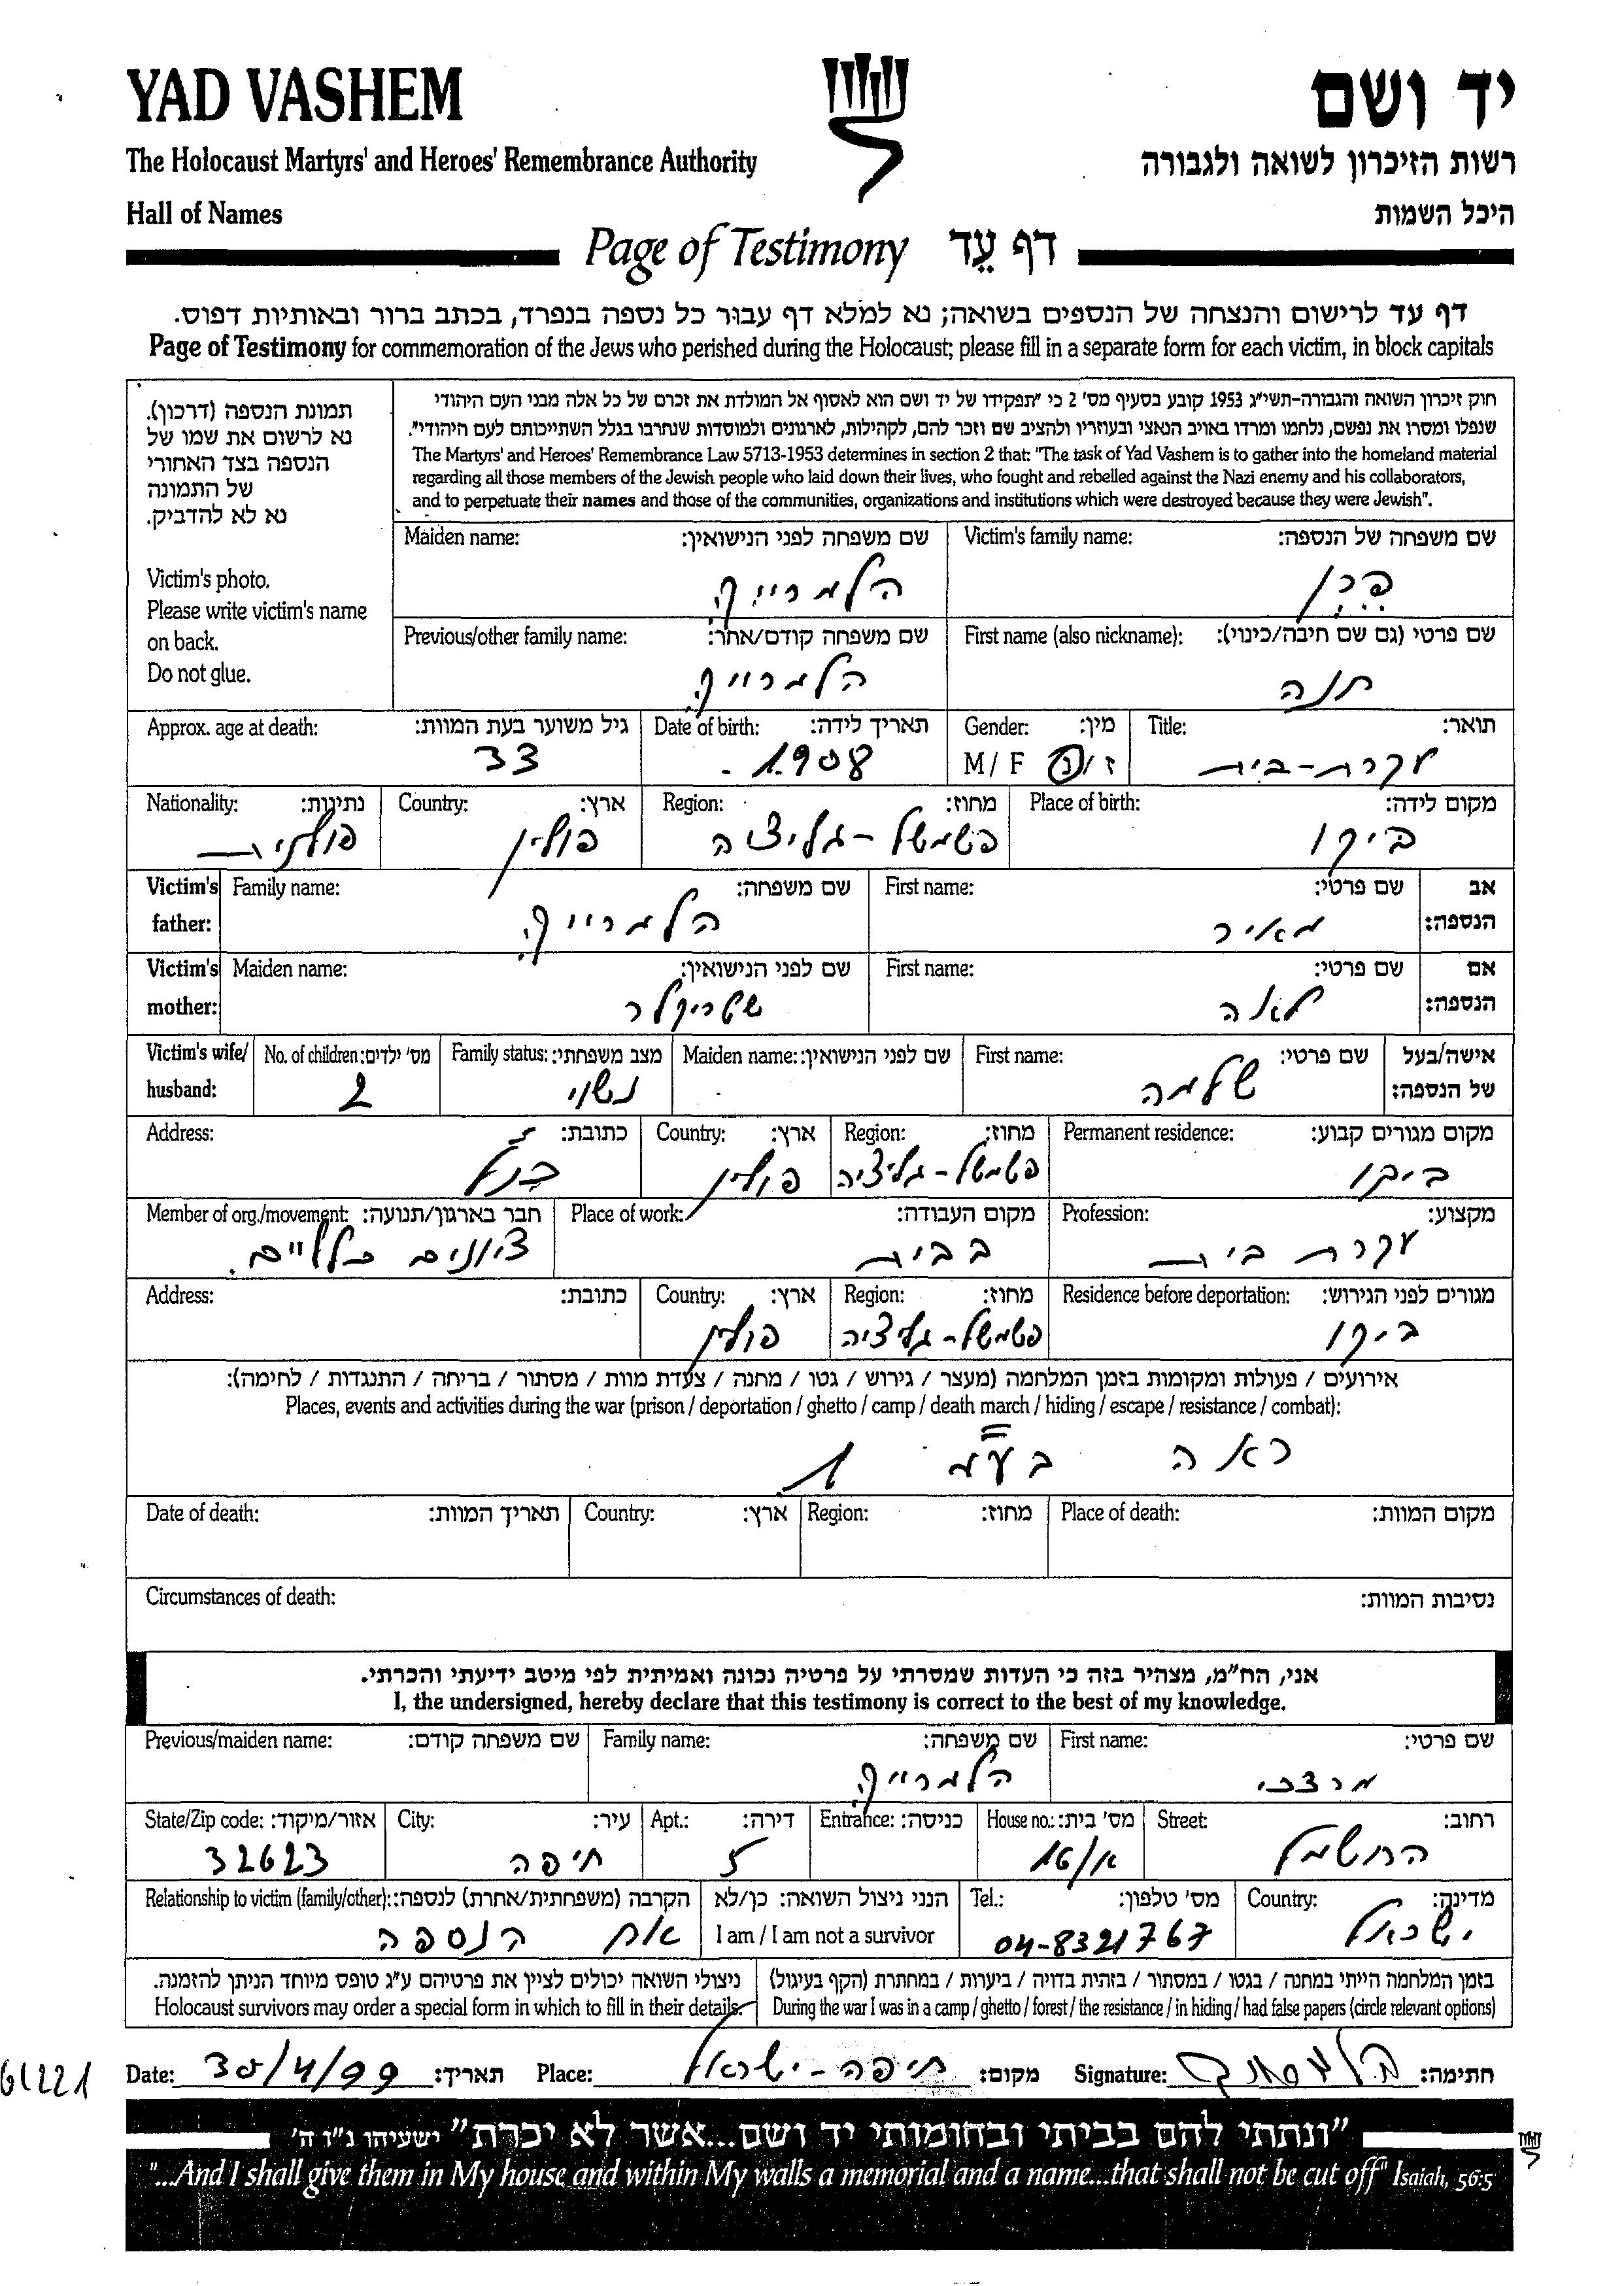 YAD VASHEM
יד ושם
The Holocaust Martyrs' and Heroes' Remembrance Authority
רשות הזיכרון לשואה ולגבורה
Hall of Names
היכל השמות
Page of Testimony דף עֵד
דף עד לרישום והנצחה של הנספים בשואה; נא למלא דף עבור כל נספה בנפרד, בכתב ברור ובאותיות דפוס.
Page of Testimony for commemoration of the Jews who perished during the Holocaust; please fill in a separate form for each victim, in block capitals
תמונת הנספה (דרכון).
נא לרשום את שמו של
הנספה בצד האחורי
של התמונה
נא לא להדביק.
Victim's photo.
Please write victim's name
on back.
Do not glue.
חוק זיכרון השואה והגבורה-תשי"ג 1953 קובע בסעיף מס' 2 כי "תפקידו של יד ושם הוא לאסוף אל המולדת את זכרם של כל אלה מבני העם היהודי
שנפלו ומסרו את נפשם, נלחמו ומרדו באויב הנאצי ובעוזריו ולהציב שם וזכר להם, לקהילות, לארגונים ולמוסדות שנחרבו בגלל השתייכותם לעם היהודי".
The Martyrs' and Heroes' Remembrance Law 5713-1953 determines in section 2 that: "The task of Yad Vashem is to gather into the homeland material
regarding all those members of the Jewish people who laid down their lives, who fought and rebelled against the Nazi enemy and his collaborators,
and to perpetuate their names and those of the communities, organizations and institutions which were destroyed because they were Jewish".
Victim's family name: שם משפחה של הנספה:
Maiden name: שם משפחה לפני הנישואין:
הלמרייך
First name (also nickname): שם פרטי (גם שם חיבה/כינוי):
חנה
Previous/other family name: שם משפחה קודם/אחר:
הלמרייך
Title: תואר:
עקרת-בית
Gender: מין:
M / F ז / נ
Date of birth: תאריך לידה:
1908
Approx. age at death: גיל משוער בעת המוות:
33
Place of birth: מקום לידה:
Region: מחוז:
פשמשל-גליציה
Country: ארץ:
פולין
Nationality: נתינות:
פולנית
Victim's father: אב הנספה:
First name: שם פרטי:
מאיר
Family name: שם משפחה:
הלמרייך
Victim's mother: אם הנספה:
First name: שם פרטי:
לאה
Maiden name: שם לפני הנישואין:
שטריקלר
Victim's wife/ husband: אישה/בעל של הנספה:
First name: שם פרטי:
שלמה
Maiden name: שם לפני הנישואין:
Family status: מצב משפחתי:
נשוי
No. of children: מס' ילדים:
2
Permanent residence: מקום מגורים קבוע:
Region: מחוז:
פשמשל-גליציה
Country: ארץ:
פולין
Address: כתובת:
Profession: מקצוע:
עקרת בית
Place of work: מקום העבודה:
בבית
Member of org./movement: חבר בארגון/תנועה:
ציונים כלליים.
Residence before deportation: מגורים לפני הגירוש:
Region: מחוז:
פשמשל-גליציה
Country: ארץ:
פולין
Address: כתובת:
אירועים / פעולות ומקומות בזמן המלחמה (מעצר / גירוש / גטו / מחנה / צעדת מוות / מסתור / בריחה / התנגדות / לחימה):
Places, events and activities during the war (prison / deportation / ghetto / camp / death march / hiding / escape / resistance / combat):
ראה בעמ 1
Place of death: מקום המוות:
Region: מחוז:
Country: ארץ:
Date of death: תאריך המוות:
Circumstances of death: נסיבות המוות:
אני, הח"מ, מצהיר בזה כי העדות שמסרתי על פרטיה נכונה ואמיתית לפי מיטב ידיעתי והכרתי.
I, the undersigned, hereby declare that this testimony is correct to the best of my knowledge.
First name: שם פרטי:
מרדכי
Family name: שם משפחה:
הלמרייך
Previous/maiden name: שם משפחה קודם:
Street: רחוב:
החשמל
House no.: מס' בית:
16/א
Entrance: כניסה:
Apt.: דירה:
5
City: עיר:
חיפה
State/Zip code: אזור/מיקוד:
32623
Country: מדינה:
ישראל
Tel.: מס' טלפון:
04-8321767
הנני ניצול השואה: כן/לא
I am / I am not a survivor
Relationship to victim (family/other): הקרבה (משפחתית/אחרת) לנספה:
אח הנספה
בזמן המלחמה הייתי במחנה / בגטו / במסתור / בזהות בדויה / ביערות / במחתרת (הקף בעיגול)
During the war I was in a camp / ghetto / forest / the resistance / in hiding / had false papers (circle relevant options)
ניצולי השואה יכולים לציין את פרטיהם ע"ג טופס מיוחד הניתן להזמנה.
Holocaust survivors may order a special form in which to fill in their details.
Date: 30/4/99 תאריך: Place: חיפה-ישראל מקום: Signature: חתימה:
"ונתתי להם בביתי ובחומותי יד ושם...אשר לא יכרת" ישעיהו נ"ו ה'
"...And I shall give them in My house and within My walls a memorial and a name...that shall not be cut off" Isaiah, 56:5